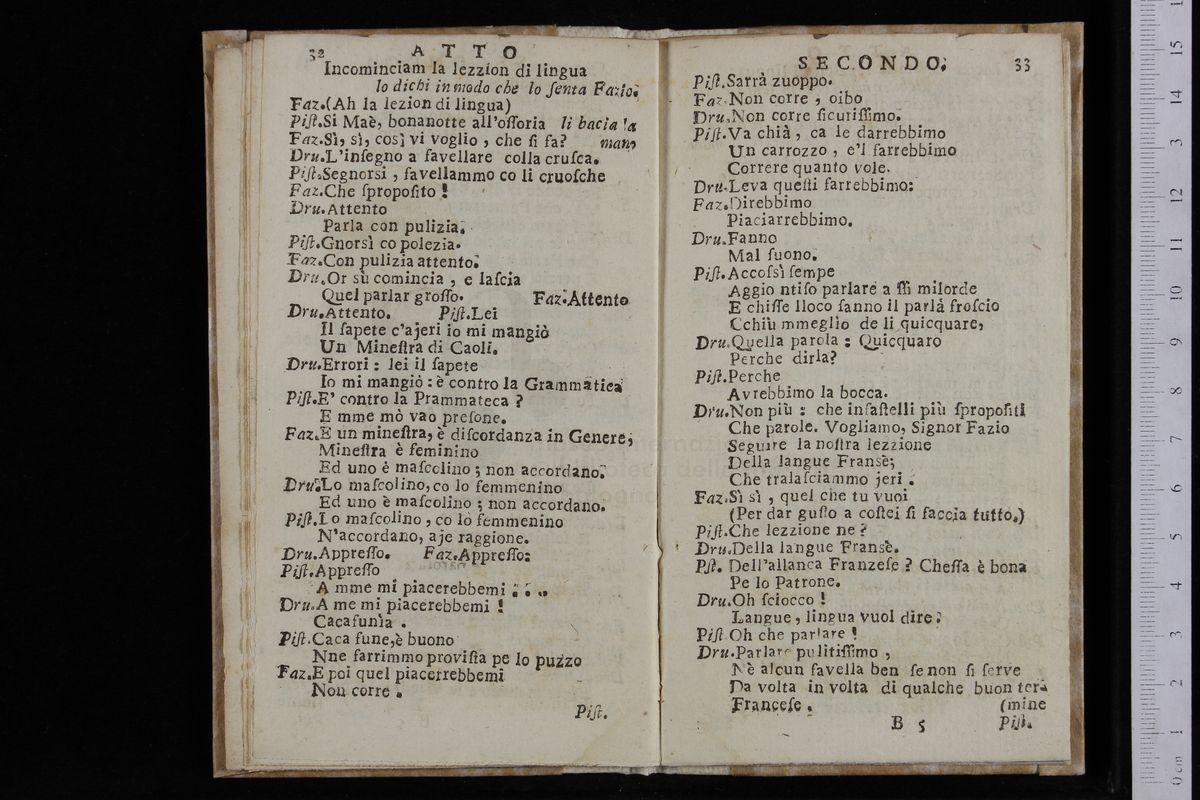 32 ATTO
Incominciam la lezzion di lingua
lo dichi in modo che lo ſenta Fazio.
Faz.(Ah la lezion di lingua)
Piſt.Si Maè, bonanotte all'oſſoria li bacia la
Faz.Sì, sì, così vi voglio , che ſi fa? mano
Dru.L'inſegno a favellare colla cruſca.
Piſt.Segnorsi , favellammo co li cruoſche
Faz.Che ſpropoſito !
Dru.Attento
Parla con pulizia.
Piſt.Gnorsì co polezia.
Faz.Con pulizia attento.
Dru.Or sù comincia , e laſcia
Quel parlar groſſo. Faz.Attento
Dru.Attento. Piſt.Lei
Il ſapete c'ajeri io mi mangiò
Un Mineſtra di Caoli.
Dru.Errori : lei il ſapete
Io mi mangiò : è contro la Grammatica
Piſt.E' contro la Prammateca ?
E mme mò vao preſone.
Faz.E un mineſtra, è diſcordanza in Genere,
Mineſtra è feminino
Ed uno è maſcolino ; non accordano.
Dru.Lo maſcolino, co lo femmenino
Ed uno è maſcolino ; non accordano.
Piſt.Lo maſcolino , co lo femmenino
N'accordano, aje raggione.
Dru.Appreſſo. Faz.Appreſſo:
Piſt.Appreſſo
A mme mi piacerebbemi . . ..
Dru.A me mi piacerebbemi !
Cacafunìa .
Piſt.Caca fune,è buono
Nne farrimmo proviſta pe lo puzzo
Faz.E poi quel piacerrebbemi
Non corre .
Piſt.
SECONDO. 33
Piſt.Sarrà zuoppo.
Faz.Non corre , oibo
Dru.Non corre ſicuriſſimo.
Piſt.Va chià , ca le darrebbimo
Un carrozzo , e'l farrebbimo
Correre quanto vole.
Dru.Leva queſti farrebbimo:
Faz.Direbbimo
Piaciarrebbimo.
Dru.Fanno
Mal ſuono.
Piſt.Accoſsì ſempe
Aggio ntiſo parlare a ſſi milorde
E chiſſe lloco ſanno il parlà froſcio
Cchiù mmeglio de li quicquare,
Dru.Quella parola : Quicquaro
Perche dirla?
Piſt.Perche
Avrebbimo la bocca.
Dru.Non più : che infaſtelli più ſpropoſiti
Che parole. Vogliamo, Signor Fazio
Seguire la noſtra lezzione
Della langue Fransè;
Che tralaſciammo jeri .
Faz.Sì sì , quel che tu vuoi
(Per dar guſto a coſtei ſi faccia tutto.)
Piſt.Che lezzione ne ?
Dru.Della langue Fransè.
Pſt. Dell'allanca Franzeſe ? Cheſſa è bona
Pe lo Patrone.
Dru.Oh ſciocco !
Langue, lingua vuol dire.
Piſt Oh che parlare !
Dru.Parlare pulitiſſimo ,
Nè alcun favella ben ſe non ſi ſerve
Da volta in volta di qualche buon ter-
Franceſe . (mine
B 5 Piſt.